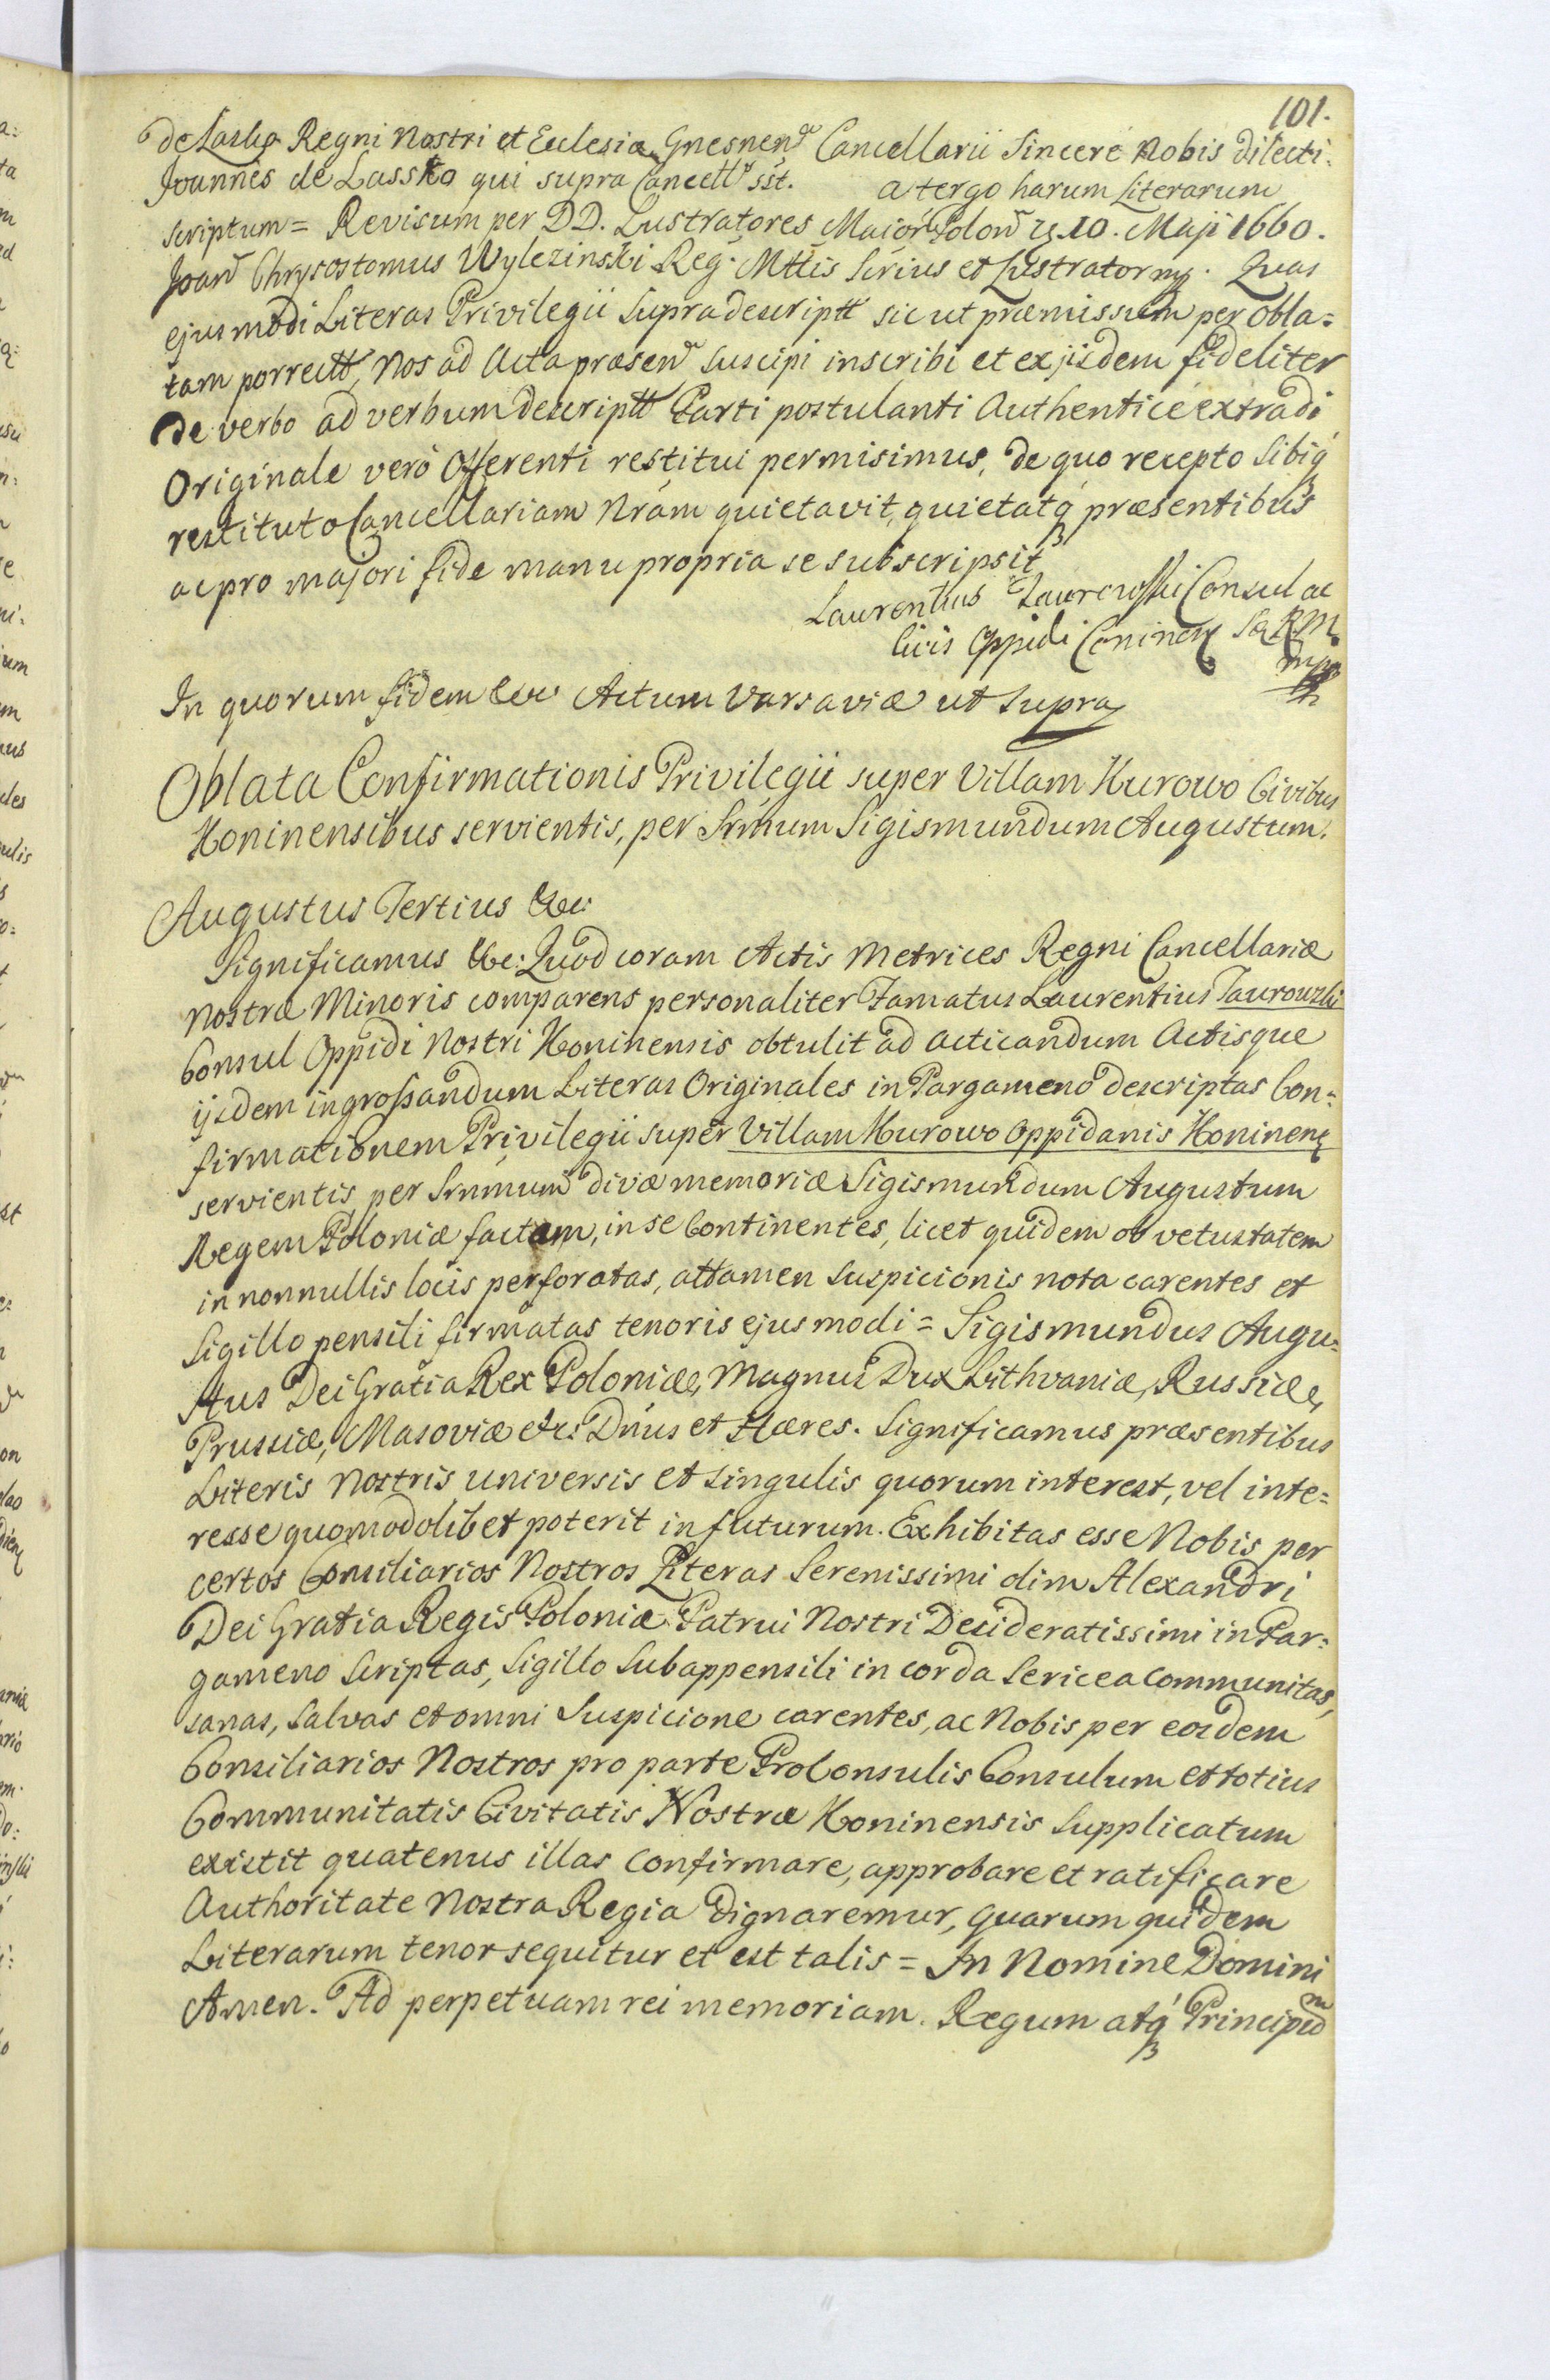 101.
de Lasko Regni Nostri et Ecclesiæ Gnesnen Cancellarii Sincere Nobis dilecti.
Joannes de Lassko qui supra Cancell sst. a tergo harum Literarum
scriptum = Revisum per DD. Lustratores Maior Polon 10. Maji 1660.
Joan Chrysostomus Wylezinski Reg. Mttis Scrius et Lustrator mp. Quas
ejusmodi Literas Privilegii supradescriptt sic ut præmissum per obla=
tam porrectt, Nos ad Acta præsen suscipi inscribi et ex jisdem fideliter
de verbo ad verbum descriptt Parti postulanti Authentice extradi
Originale verò Offerenti restitui permisimus, de quo recepto sibiq
restituto Cancellariam Nram quietavit, quietatq præsentibus
ac pro majori fide manu propria se subscripsit
Laurentius Taurowski Consul ac
Civis Oppidi Coninen S R M
mpp
In quorum fidem &c Actum Varsaviæ ut supra
Oblata Confirmationis Privilegii super Villam Kurowo Civibus
Koninensibus servientis, per Srmum Sigismundum Augustum.
Augustus Tertius &c:
Significamus &c: Quod coram Actis Metrices Regni Cancellariæ
Nostræ Minoris comparens personaliter Famatus Laurentius Taurowski
Consul Oppidi Nostri Koninensis obtulit ad acticandum Actisque
ijsdem ingrossandum Literas Originales in Pargameno descriptas Con=
firmationem Privilegii super Villam Kurowo Oppidanis Koninen
servientis per Srnmum divæ memoriæ Sigismundum Augustum
Regem Poloniæ factam, in se Continentes, licet quidem ob vetustatem
in nonnullis locis perforatas, attamen suspicionis nota carentes et
Sigillo pensili firmatas tenoris ejusmodi = Sigismundus Augu=
stus Dei Gratia Rex Poloniæ, Magnus Dux Lithvaniæ, Russiæ,
Prussiæ, Masoviæ etc: Dnus et Hæres. Significamus præsentibus
Literis Nostris universis et singulis quorum interest, vel inte=
resse quomodolibet poterit in futurum. Exhibitas esse Nobis per
certos Consiliarios Nostros Literas Serenissimi olim Alexandri
Dei Gratia Regis Poloniæ Patrui Nostri Desideratissimi in Par=
gameno Scriptas, Sigillo Subappensili in corda sericea communitas,
sanas, salvas et omni Suspicione carentes, ac Nobis per eosdem
Consiliarios Nostros pro parte ProConsulis Consulum et totius
Communitatis Civitatis Nostræ Koninensis Supplicatum
existit quatenus illas confirmare, approbare et ratificare
Authoritate Nostra Regia dignaremur, quarum quidem
Literarum tenor sequitur et est talis = In Nomine Domini
Amen. Ad perpetuam rei memoriam. Regum atq Principum